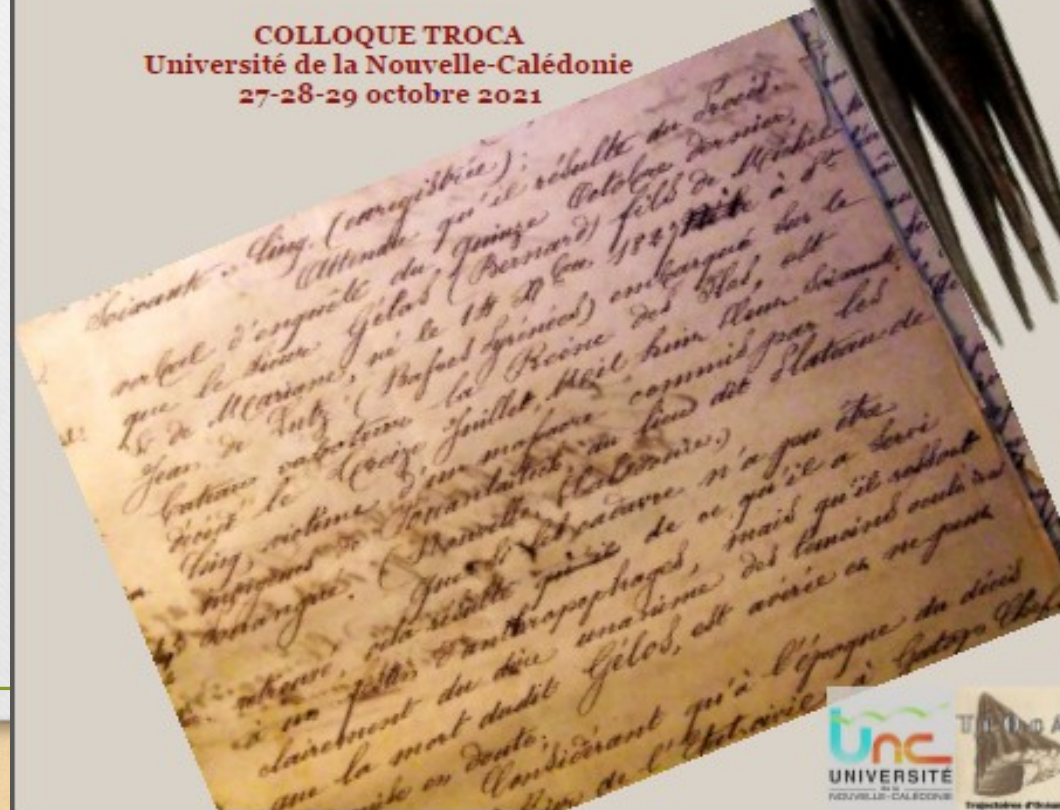 COLLOQUE TROCA
Université de la Nouvelle-Calédonie
27-28-29 octobre 2021
Soixante .. Cinq. (enregistrée) ;
Attendu qu'il résulte du Procès.
verbal d'enquête du quinze Octobre dernier,
que le sieur Gélos (Bernard) fils de Michel
& de Mariane, né le 14 1842 à St
Jean de Lutz (Basses Pyrénées) embarqué sur le
bateau la Reine des Iles, est
décédé le treize Juillet, Mil huit Cent Soixante
Cinq, victime d'un massacre commis par les
indigènes de au lieu dit Plateau de
(Nouvelle Calédonie.)
que le cadavre n'a pu être
retrouvé, cela résulte de ce qu'il a servi
à un festin d'anthropophages, mais qu'il ressort
clairement du dire unanime des témoins
que la mort dudit Gélos, est avérée et ne peut
en doute ;
Considérant qu'à l'époque du décès
de l'Etat-civil à
unc
UNIVERSITÉ
DE LA
NOUVELLE-CALÉDONIE
TROCA